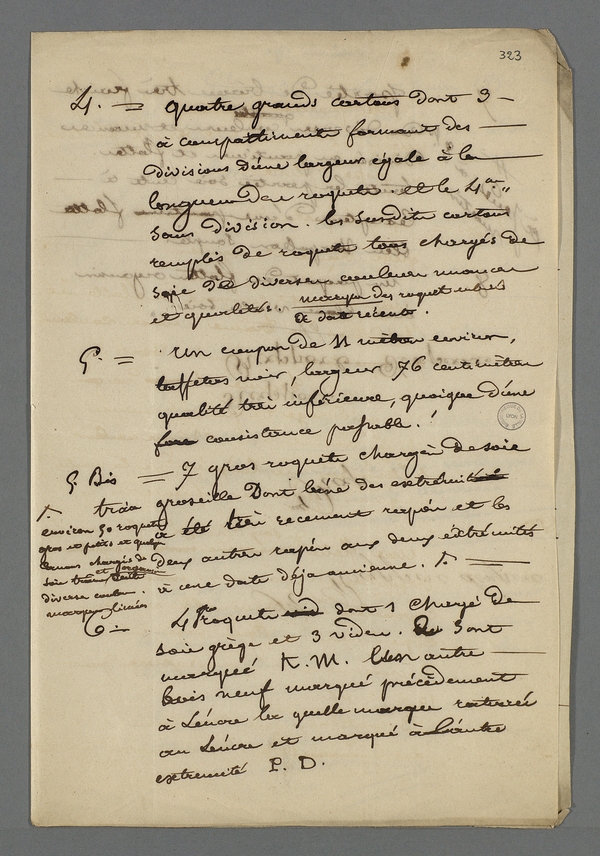 323
4. = quatre grands cartons dont 3 —
à compartiments formant des —
divisions d'une largeur égale à la —
longueur des roquets. et le 4me
sans division. les susdits cartons
remplis de roquets tous chargés de
soie de diverses couleurs nuances
et qualités. marque des roquets
et date récente.
5. = un coupon de 11 mètres environ,
taffetas noir, largeur 76 centimètres
qualité très inférieure, quoique d'une
consistance passable.
5 Bis = 7 gros roquets chargés de soie
groseille dont l'une des extrémités
a été très récemment rapée et les
deux autres rapés aux deux extrémités
à une date déja ancienne. —
environ 50 roquets
gros et petits et quelques
canons chargés de
soie trame
et organsin
diverses couleurs.
marques limées
6 = 4 roquets dont 1 chargé de
soie grège et 3 vides. 3 sont
marqués K. M. l'un autre —
bois neuf marqué précédemment
à l'encre la quelle marque raturée
au l'encre et marqué à l'autre
extremité P. D.